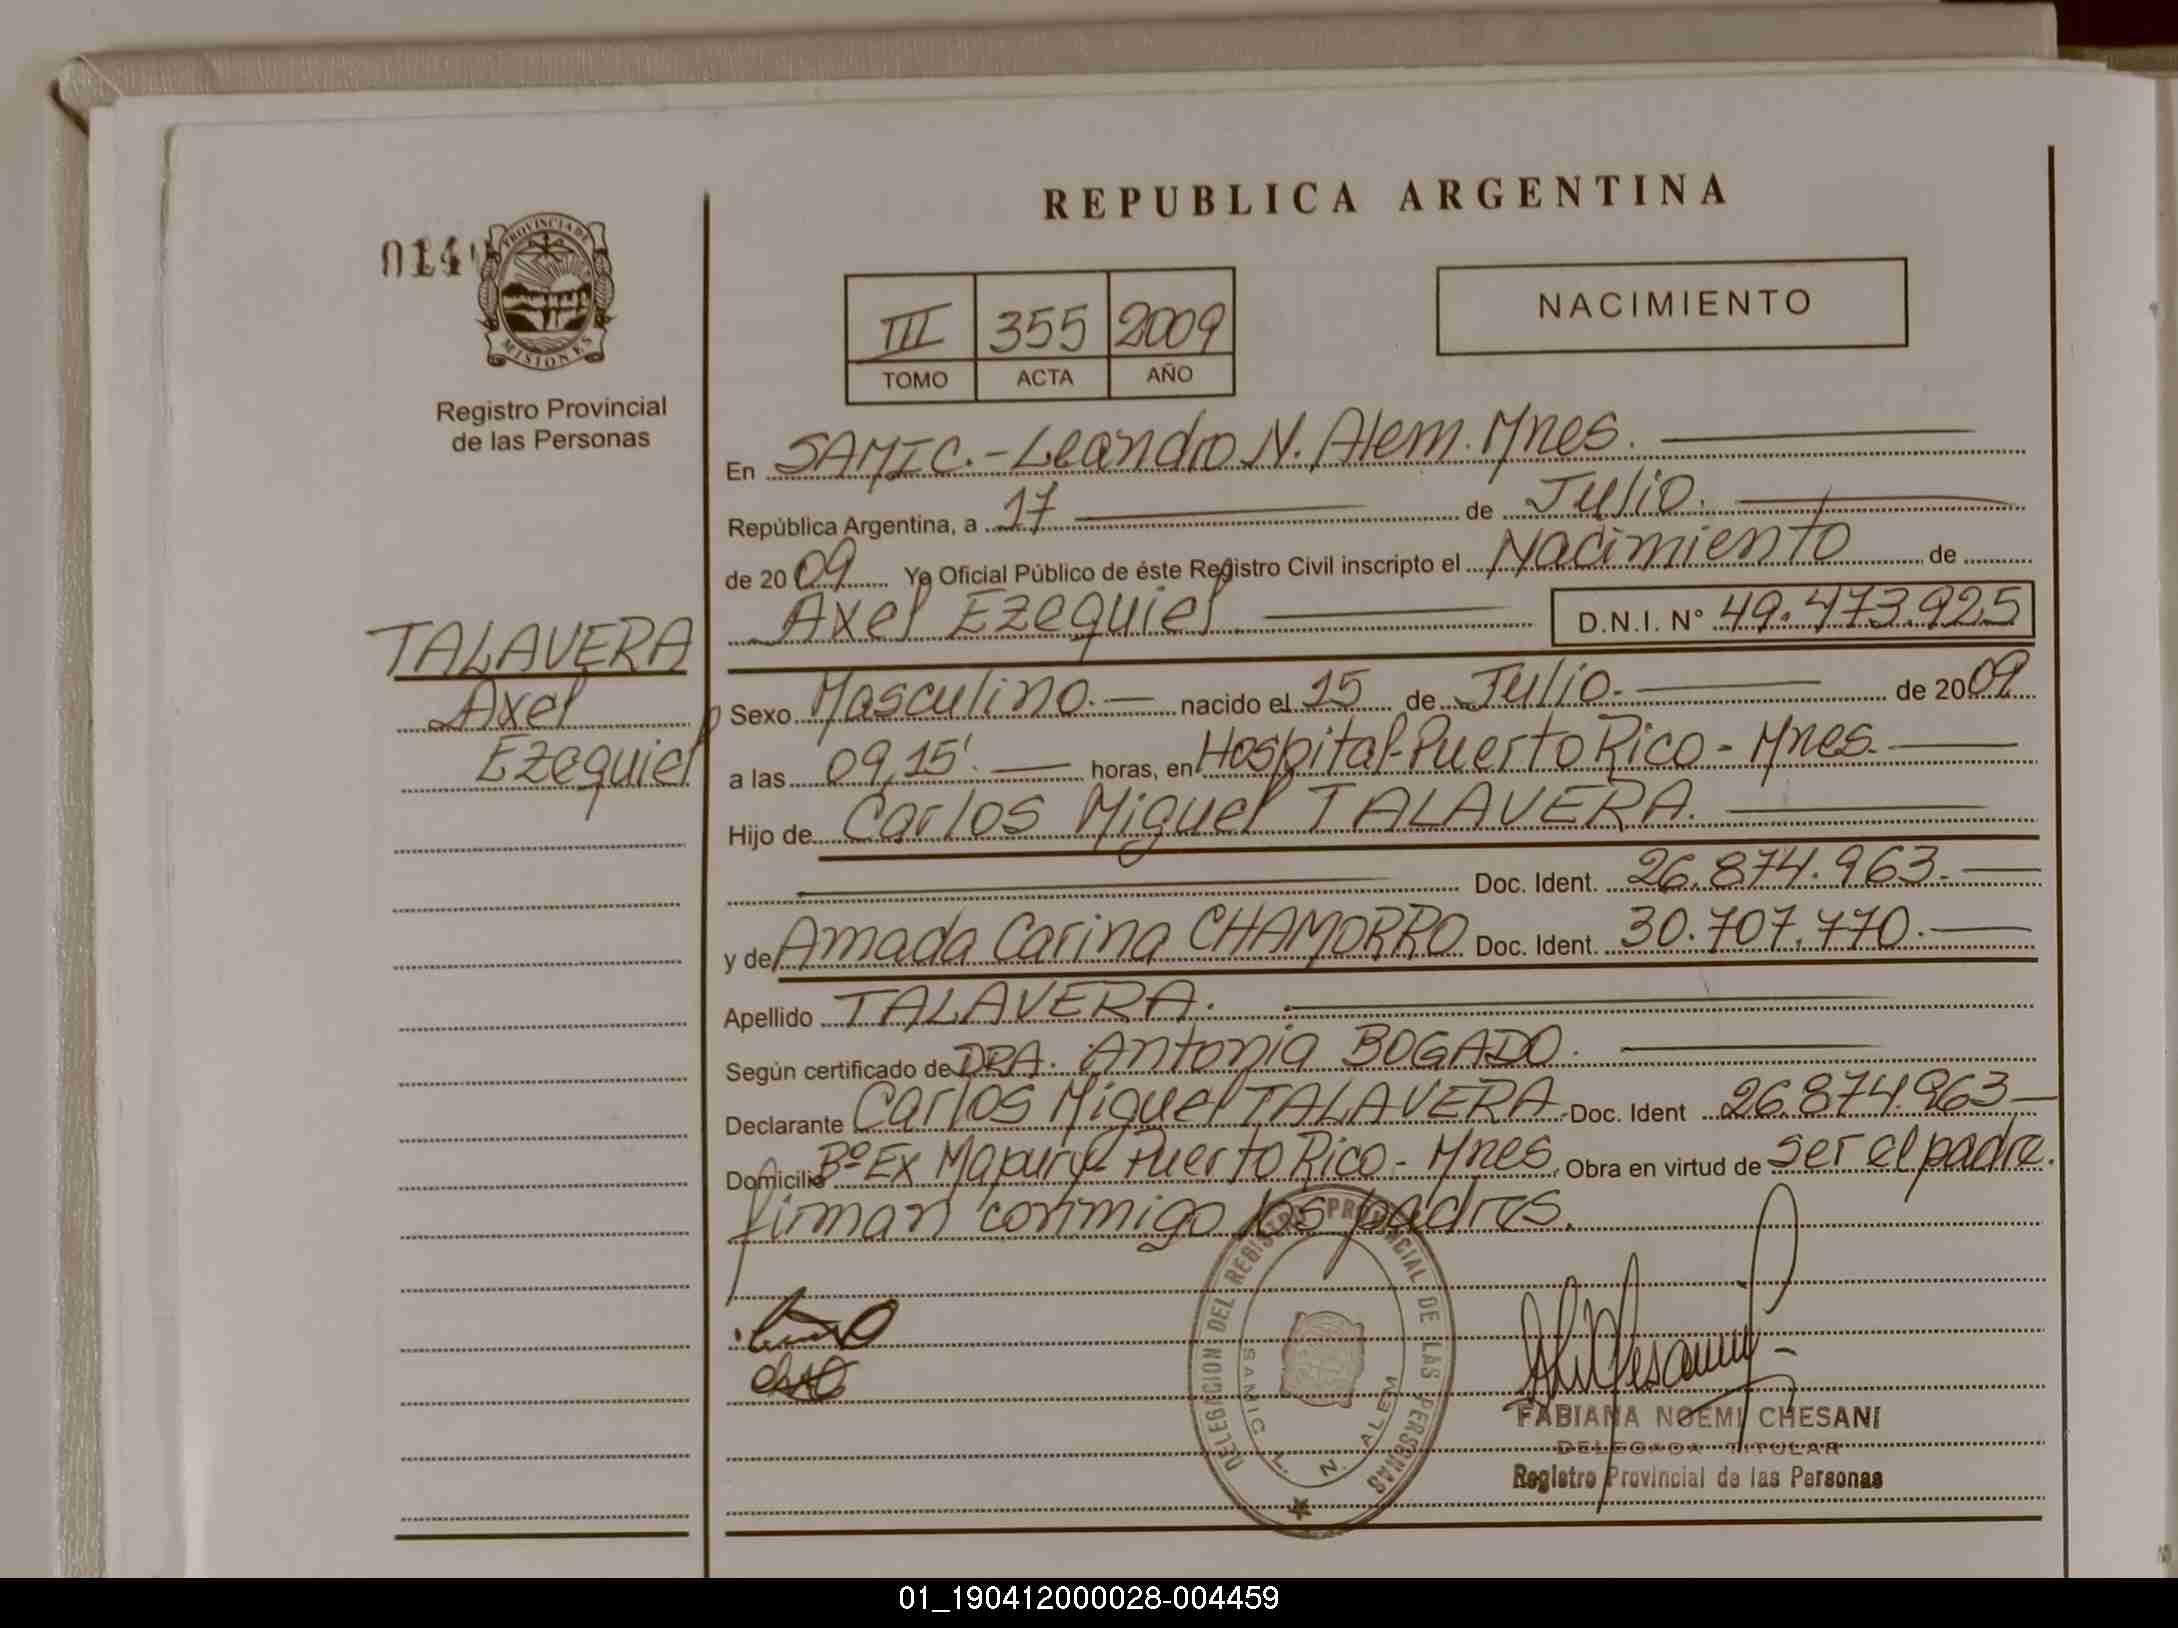 REPUBLICA ARGENTINA
PROVINCIA DE
MISIONES
Registro Provincial
de las Personas
III 355 2009
TOMO ACTA AÑO
NACIMIENTO
En SAMIC.-Leandro N. Alem. Mnes.
República Argentina, a 17 de Julio.
de 2009 Yo Oficial Público de éste Registro Civil inscripto el Nacimiento de
Axel Ezequiel D.N.I. N° 49.473.925
TALAVERA
Axel
Ezequiel
Sexo Masculino.- nacido el 15 de Julio.- de 2009
a las 09,15'. horas, en Hospital-Puerto Rico - Mnes.
Hijo de Carlos Miguel TALAVERA.
Doc. Ident. 26.874.963.
y de Amada Carina CHAMORRO Doc. Ident. 30.707.770.
Apellido TALAVERA.
Según certificado de DRA. Antonia BOGADO.
Declarante Carlos Miguel TALAVERA Doc. Ident 26.874.963
Domicilio B° Ex Mapury- Puerto Rico - Mnes. Obra en virtud de ser el padre.
firman conmigo los padres.
DELEGACION DEL REGISTRO PROVINCIAL DE LAS PERSONAS
SAMIC L. N. ALEM
FABIANA NOEMI CHESANI
DELEGADA TITULAR
Registro Provincial de las Personas
01_190412000028-004459